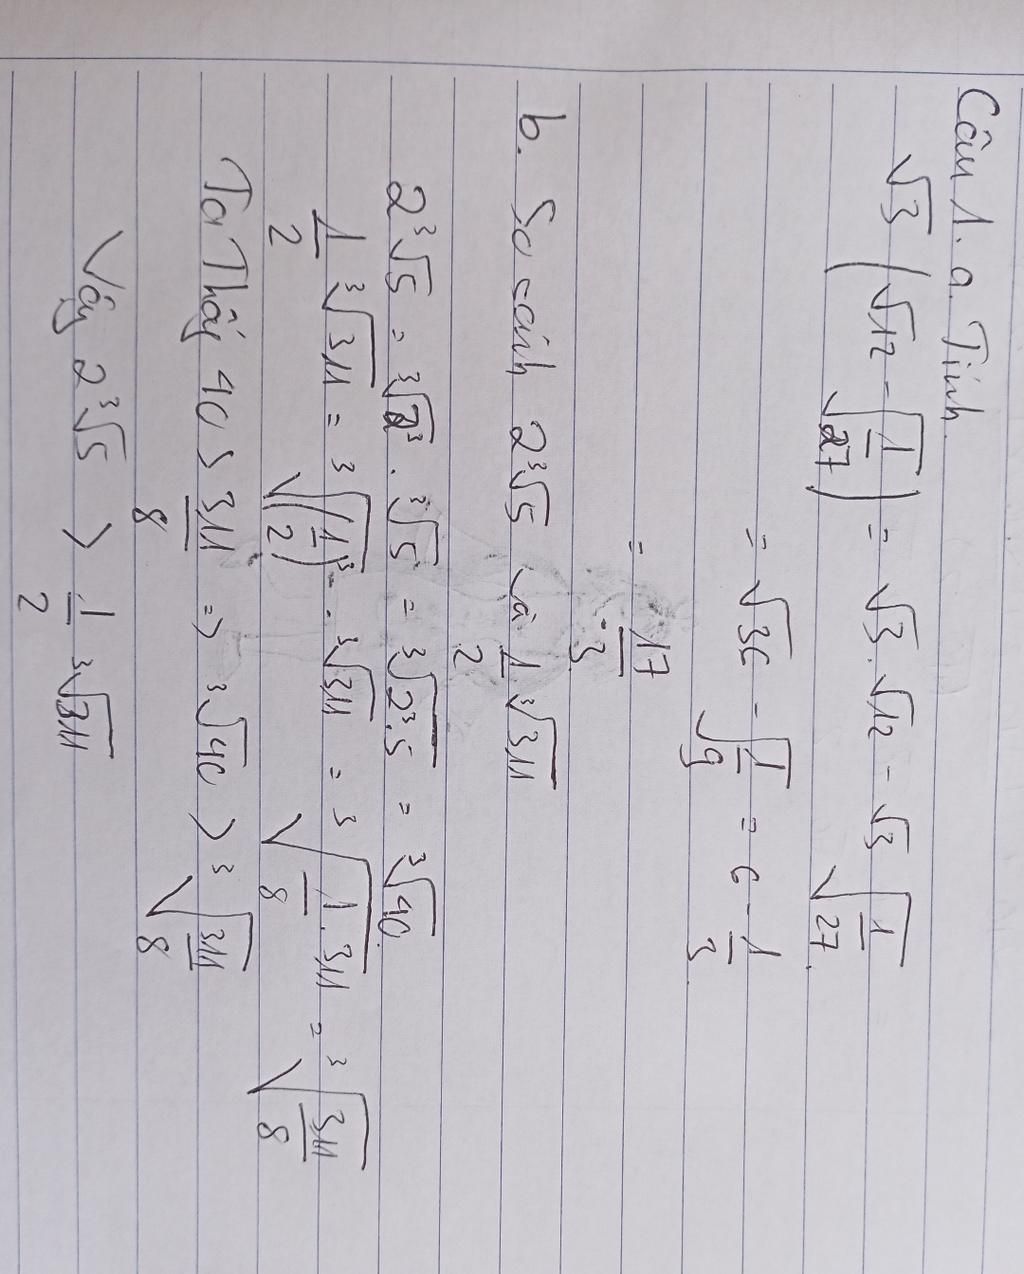 Câu 1. a. Tính
√3 (√12 - √(1/27)) = √3 . √12 - √3 √(1/27).
= √36 - √(1/9) = 6 - 1/3
= 17/3
b. So sánh 2∛5 và 1/2 ∛311
2∛5 = ∛2³ . ∛5 = ∛(2³.5) = ∛40.
1/2 ∛311 = ∛((1/2)³) . ∛311 = ∛(1/8 . 311) = ∛(311/8)
Ta Thấy 40 > 311/8 => ∛40 > ∛(311/8)
Vậy 2∛5 > 1/2 ∛311